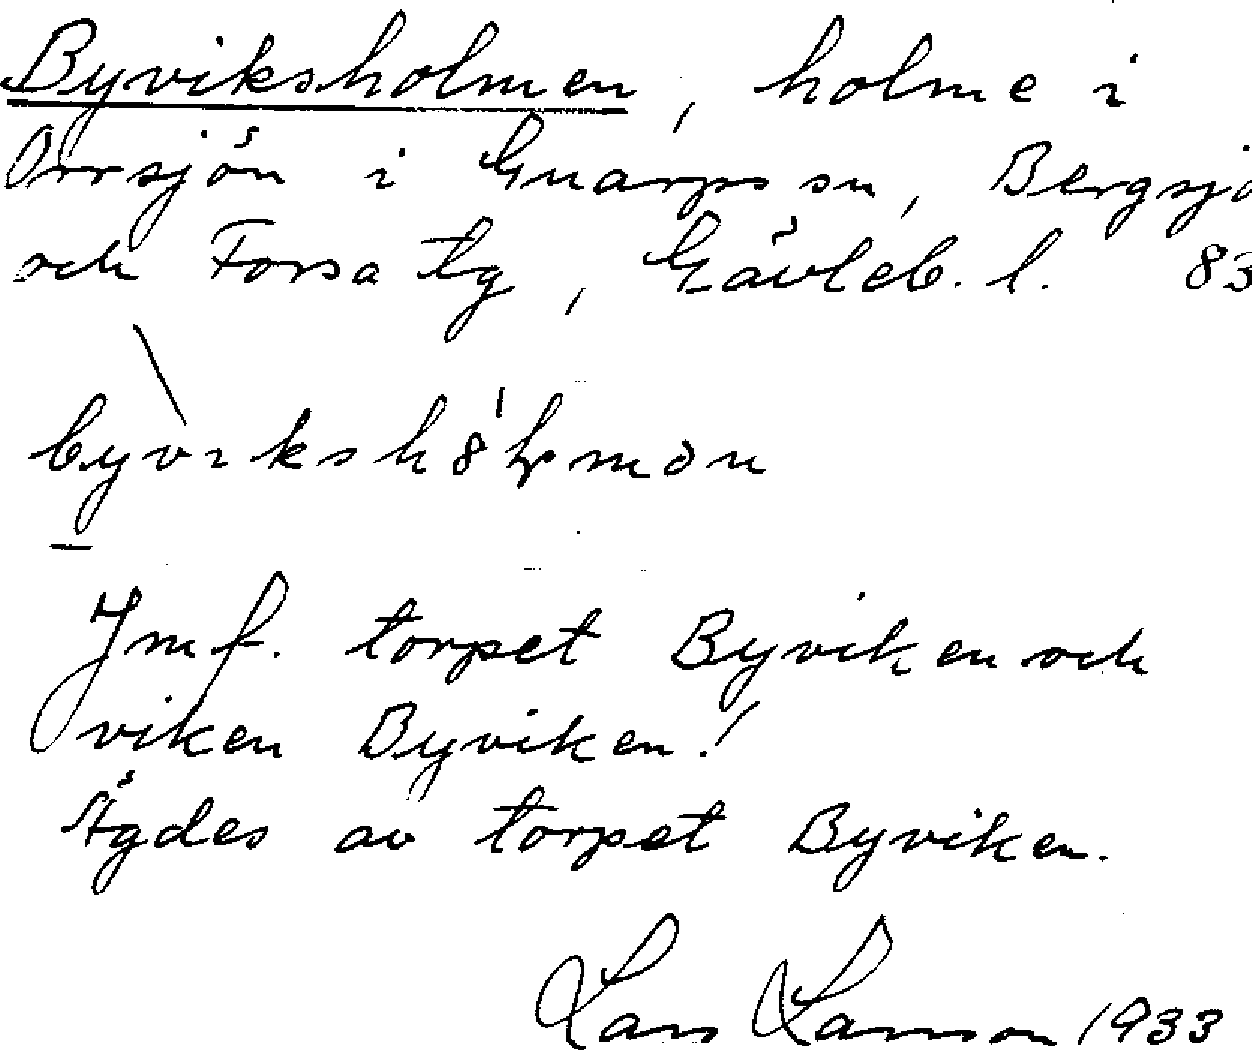 Byviksholmen, holme i
Orrsjön i Gnarps sn, Bergsjö
och Forsa tg, Gävleb. l. 83
Jmf. torpet Byviken och
viken Byviken!
Ägdes av torpet Byviken.
Lars Larsson 1933